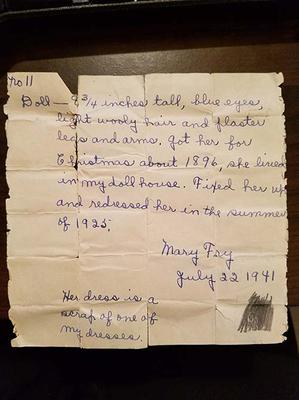 No 11
Doll — 9 3/4 inches tall, blue eyes,
light wooly hair and plaster
legs and arms. Got her for
Christmas about 1896, she lived
in my doll house. Fixed her up
and redressed her in the summer
of 1925.
Mary Fry
July 22 1941
Her dress is a
scrap of one of
my dresses.